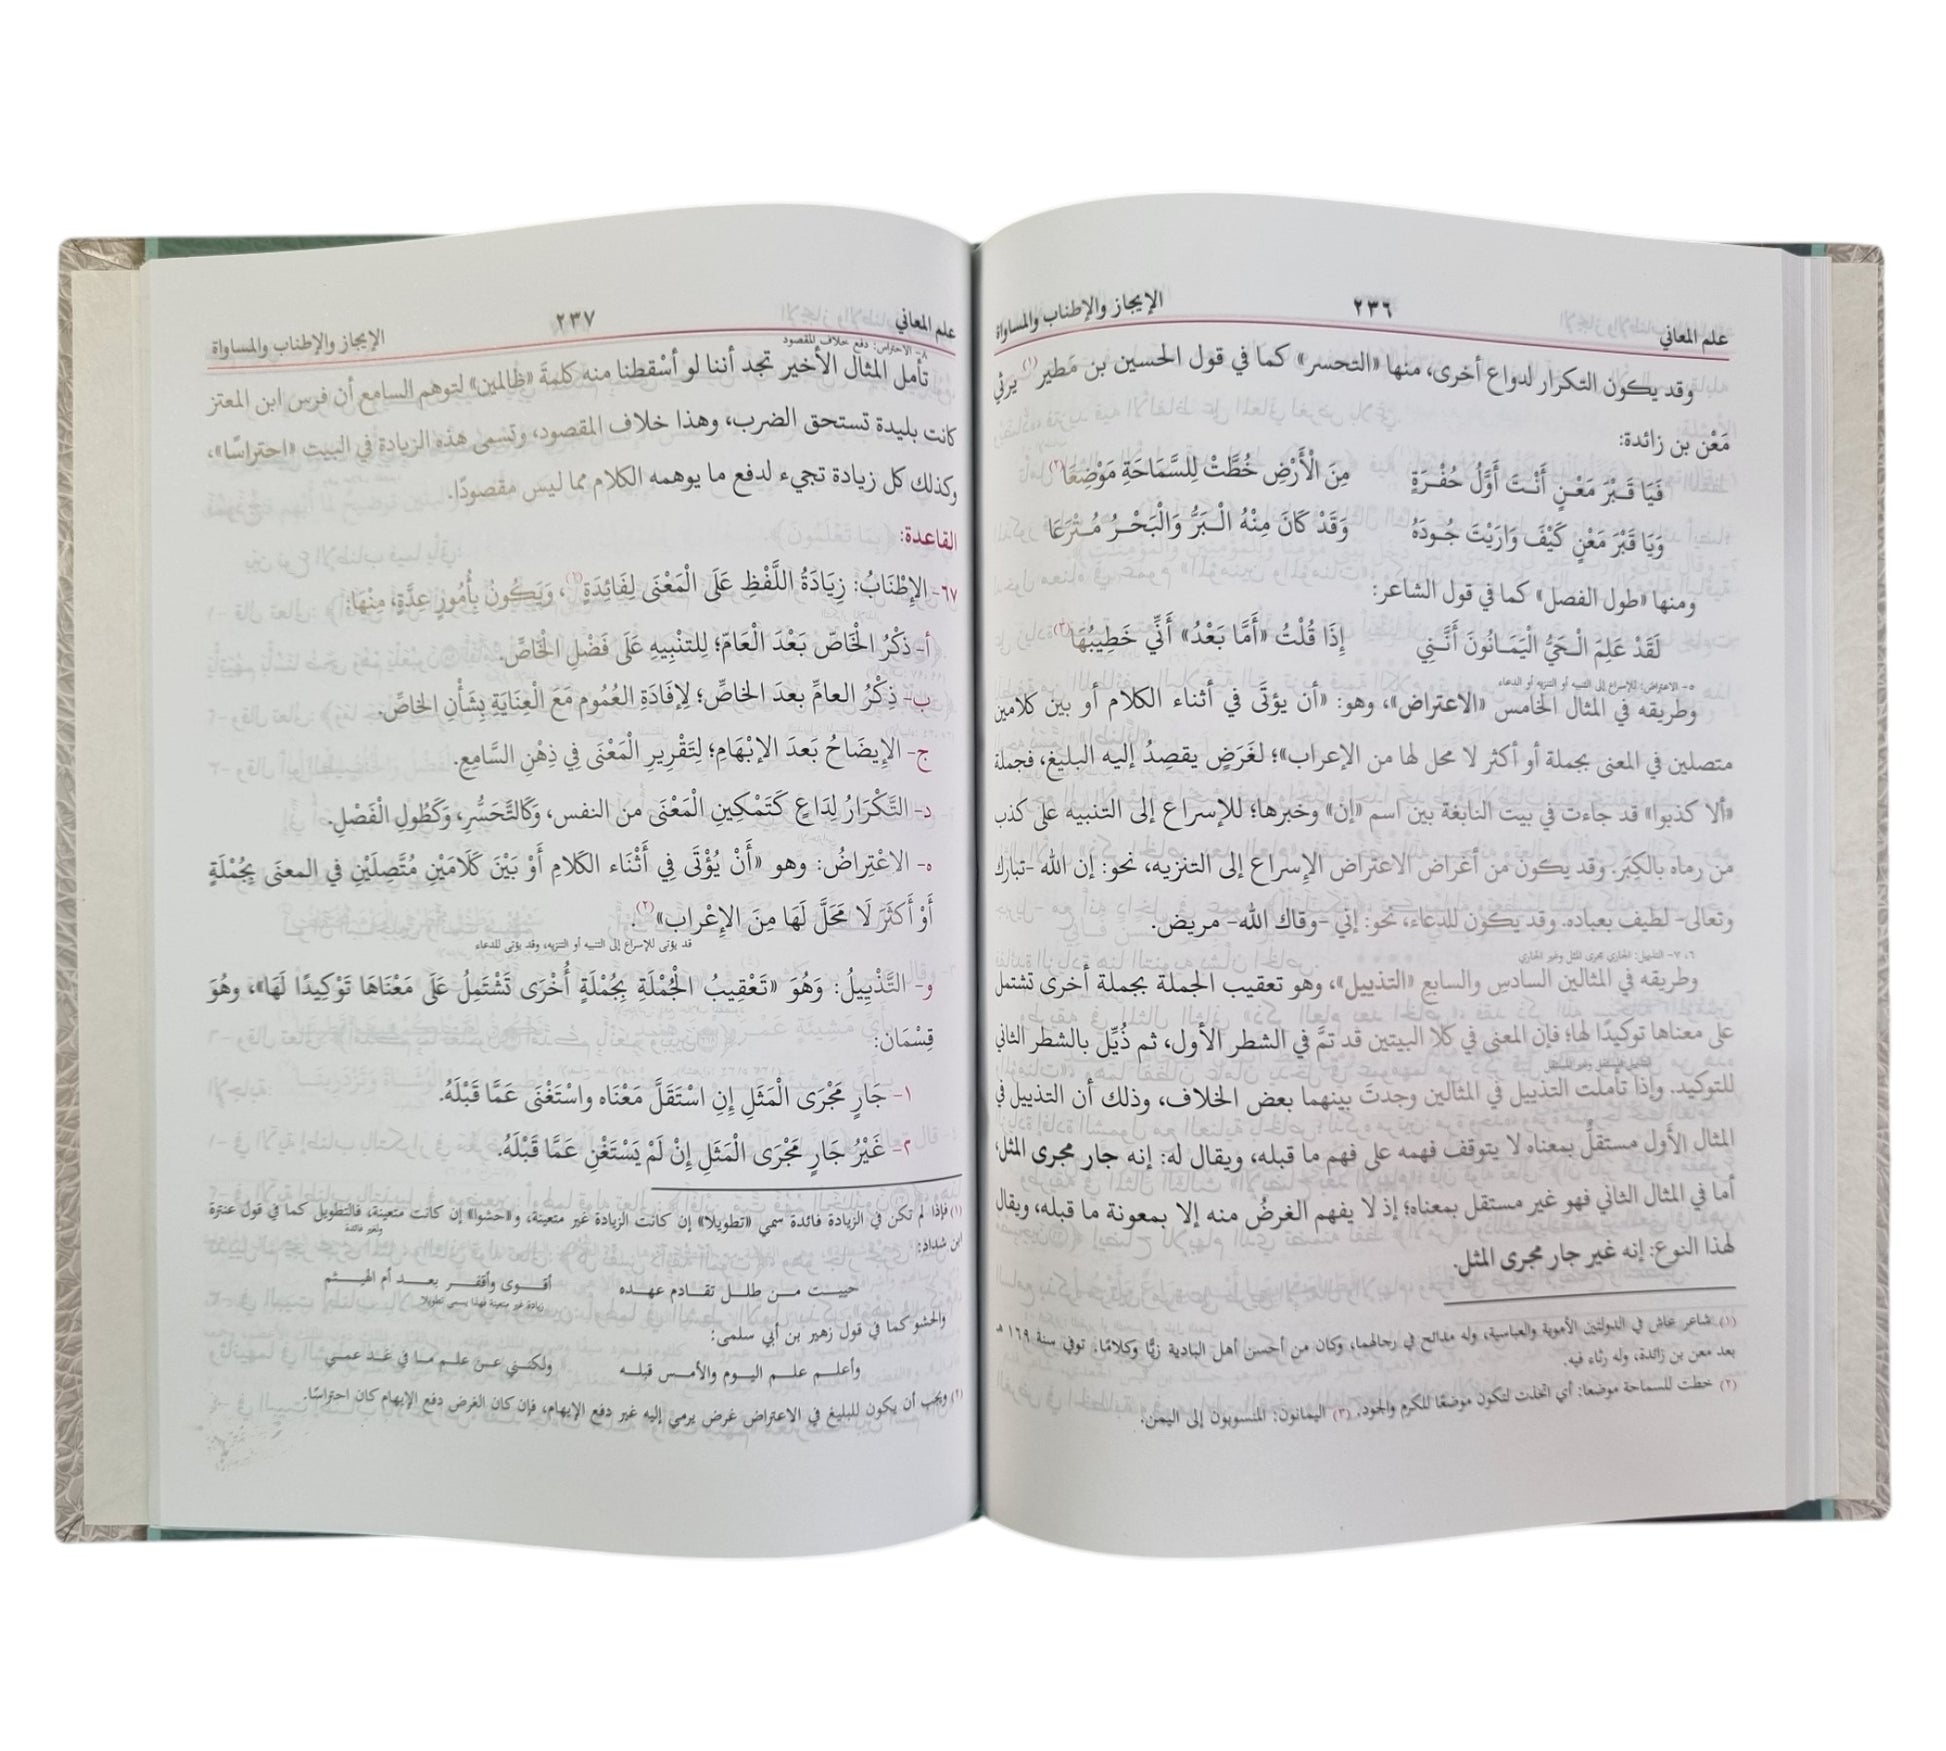 علم المعاني ٢٣٦ الإيجاز والإطناب والمساواة
وقد يكون التكرار لدواع أخرى، منها «التحسر» كما في قول الحسين بن مَطير(١) يرثي
مَعْن بن زائدة:
فَيَا قَبْرَ مَعْنٍ أَنْتَ أَوَّلُ حُفْرَةٍ مِنَ الْأَرْضِ خُطَّتْ لِلسَّمَاحَةِ مَوْضِعًا(٢)
وَيَا قَبْرَ مَعْنٍ كَيْفَ وَارَيْتَ جُودَهُ وَقَدْ كَانَ مِنْهُ الْبَرُّ وَالْبَحْرُ مُتْرَعَا
ومنها «طول الفصل» كما في قول الشاعر:
لَقَدْ عَلِمَ الْحَيُّ الْيَمَانُونَ أَنَّنِي إِذَا قُلْتُ «أَمَّا بَعْدُ» أَنِّي خَطِيبُهَا(٣)
٥- الاعتراض: للإسراع إلى التنبيه أو التنزيه أو الدعاء
وطريقه في المثال الخامس «الاعتراض»، وهو: «أن يؤتَى في أثناء الكلام أو بين كلامين
متصلين في المعنى بجملة أو أكثر لا محل لها من الإعراب»؛ لغَرَضٍ يقصِدُ إليه البليغ، فجملة
«ألا كذبوا» قد جاءت في بيت النابغة بين اسم «إن» وخبرها؛ للإسراع إلى التنبيه على كذب
من رماه بالكِبَر. وقد يكون من أغراض الاعتراض الإسراع إلى التنزيه، نحو: إن الله -تبارك
وتعالى- لطيف بعباده. وقد يكون للدعاء، نحو: إني -وقاك الله- مريض.
٦، ٧- التذييل: الجاري مجرى المثل وغير الجاري
وطريقه في المثالين السادس والسابع «التذييل»، وهو تعقيب الجملة بجملة أخرى تشتمل
على معناها توكيدًا لها؛ فإن المعنى في كلا البيتين قد تمَّ في الشطر الأول، ثم ذُيِّل بالشطر الثاني
للتوكيد. وإذا تأملت التذييل في المثالين وجدتَ بينهما بعض الخلاف، وذلك أن التذييل في
المثال الأول مستقلٌّ بمعناه لا يتوقف فهمه على فهم ما قبله، ويقال له: إنه جار مجرى المثل،
أما في المثال الثاني فهو غير مستقل بمعناه؛ إذ لا يفهم الغرضُ منه إلا بمعونة ما قبله، ويقال
لهذا النوع: إنه غير جار مجرى المثل.
(١) شاعر عاش في الدولتين الأموية والعباسية، وله مدائح في رجالهما، وكان من أحسن أهل البادية زيًّا وكلامًا. توفي سنة ١٦٩ هـ
بعد معن بن زائدة، وله رثاء فيه.
(٢) خطت للسماحة موضعا: أي اتخذت لتكون موضعًا للكرم والجود. (٣) اليمانون: المنسوبون إلى اليمن.
علم المعاني ٢٣٧ الإيجاز والإطناب والمساواة
٨- الاحتراس: دفع خلاف المقصود
تأمل المثال الأخير تجد أننا لو أسْقطنا منه كلمةَ «ظالمين» لتوهم السامع أن فرس ابن المعتز
كانت بليدة تستحق الضرب، وهذا خلاف المقصود، وتسمى هذه الزيادة في البيت «احتراسًا»،
وكذلك كل زيادة تجيء لدفع ما يوهمه الكلام مما ليس مقصودًا.
القاعدة:
٦٧- الإِطْنَابُ: زِيَادَةُ اللَّفْظِ عَلَى الْمَعْنَى لِفَائِدَةٍ(١)، وَيَكُونُ بِأُمُورٍ عِدَّةٍ، مِنْهَا:
أ- ذِكْرُ الْخَاصِّ بَعْدَ الْعَامِّ؛ لِلتنْبِيهِ عَلَى فَضْلِ الْخَاصِّ.
ب- ذِكْرُ العامِّ بعدَ الخاصِّ؛ لِإفَادَةِ العُمُومِ مَعَ الْعِنَايَةِ بِشَأْنِ الخاصِّ.
ج- الإِيضَاحُ بَعدَ الإِبْهَامِ؛ لِتَقْرِيرِ الْمَعْنَى فِي ذِهْنِ السَّامِعِ.
د- التَّكْرَارُ لِدَاعٍ كَتَمْكِينِ الْمَعْنَى من النفس، وَكَالتَّحَسُّرِ، وَكَطُولِ الْفَصْلِ.
ه- الاعْتِراضُ: وهو «أَنْ يُؤْتَى فِي أَثْنَاء الكَلامِ أَوْ بَيْنَ كَلَامَيْنِ مُتَّصِلَيْنِ في المعنَى بِجُمْلَةٍ
أَوْ أَكثَرَ لَا مَحَلَّ لَهَا مِنَ الإِعْراب»(٢).
قد يؤتى للإسراع إلى التنبيه أو التنزيه، وقد يؤتى للدعاء
و- التَّذْيِيلُ: وَهُوَ «تَعْقِيبُ الْجُمْلَةِ بِجُمْلَةٍ أُخْرَى تَشْتَمِلُ عَلَى مَعْنَاهَا تَوْكِيدًا لَهَا»، وهُوَ
قِسْمَان:
١- جَارٍ مَجْرَى الْمَثَلِ إِنِ اسْتَقَلَّ مَعْنَاه واسْتَغْنَى عَمَّا قَبْلَهُ.
٢- غَيْرُ جَارٍ مَجْرَى الْمَثَلِ إِنْ لَمْ يَسْتَغْنِ عَمَّا قَبْلَهُ.
(١) فإذا لم تكن في الزيادة فائدة سمي «تطويلا» إن كانت الزيادة غير متعينة، و«حشوا» إن كانت متعينة، فالتطويل كما في قول عنترة
ابن شداد:
حييت من طلل تقادم عهده أقوى وأقفر بعد أم الهيثم
زيادة غير متعينة فهذا يسمى تطويلا
والحشو كما في قول زهير بن أبي سلمى:
وأعلم علم اليوم والأمس قبله ولكنني عن علم ما في غد عمي
(٢) ويجب أن يكون للبليغ في الاعتراض غرض يرمي إليه غير دفع الإيهام، فإن كان الغرض دفع الإيهام كان احتراسًا.